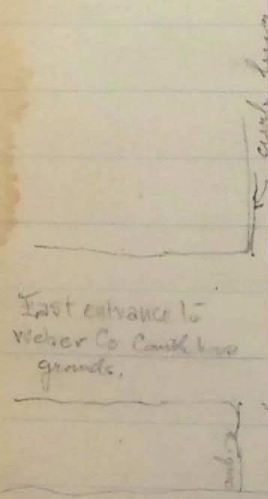 curb line
East entrance to
Weber Co Court house
grounds.
curb